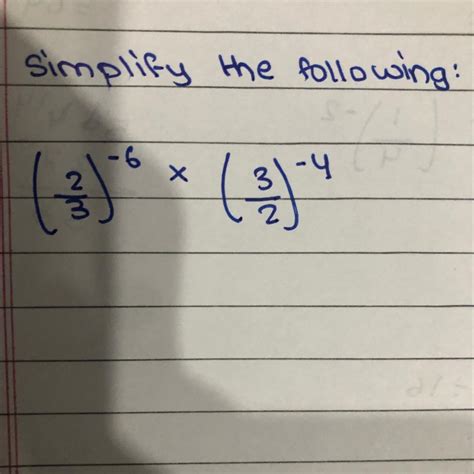 Simplify the following:
(2/3)^-6 × (3/2)^-4